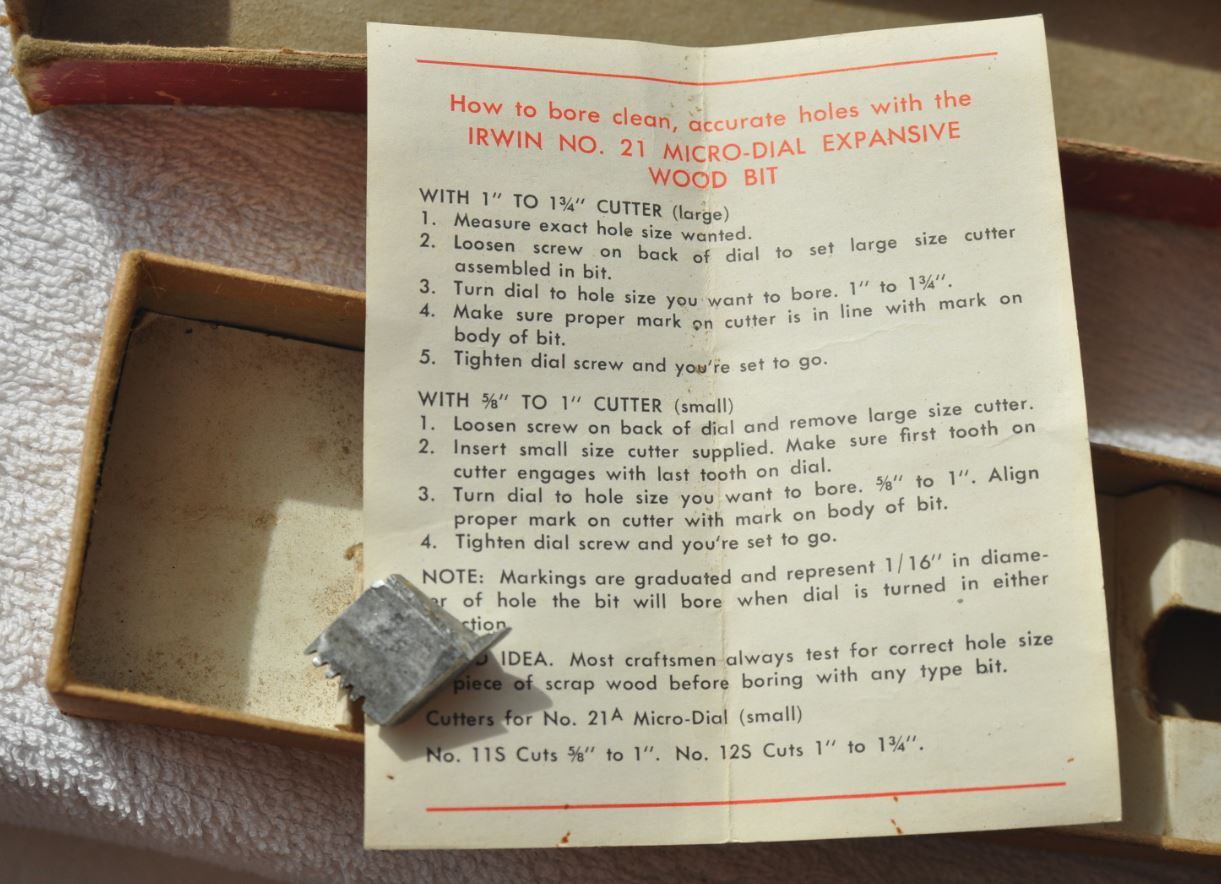 How to bore clean, accurate holes with the
IRWIN NO. 21 MICRO-DIAL EXPANSIVE
WOOD BIT
WITH 1″ TO 1¾″ CUTTER (large)
1. Measure exact hole size wanted.
2. Loosen screw on back of dial to set large size cutter
assembled in bit.
3. Turn dial to hole size you want to bore. 1″ to 1¾″.
4. Make sure proper mark on cutter is in line with mark on
body of bit.
5. Tighten dial screw and you're set to go.
WITH ⅝″ TO 1″ CUTTER (small)
1. Loosen screw on back of dial and remove large size cutter.
2. Insert small size cutter supplied. Make sure first tooth on
cutter engages with last tooth on dial.
3. Turn dial to hole size you want to bore. ⅝″ to 1″. Align
proper mark on cutter with mark on body of bit.
4. Tighten dial screw and you're set to go.
NOTE: Markings are graduated and represent 1/16″ in diame-
er of hole the bit will bore when dial is turned in either
ction
IDEA. Most craftsmen always test for correct hole size
piece of scrap wood before boring with any type bit.
Cutters for No. 21A Micro-Dial (small)
No. 11S Cuts ⅝″ to 1″. No. 12S Cuts 1″ to 1¾″.